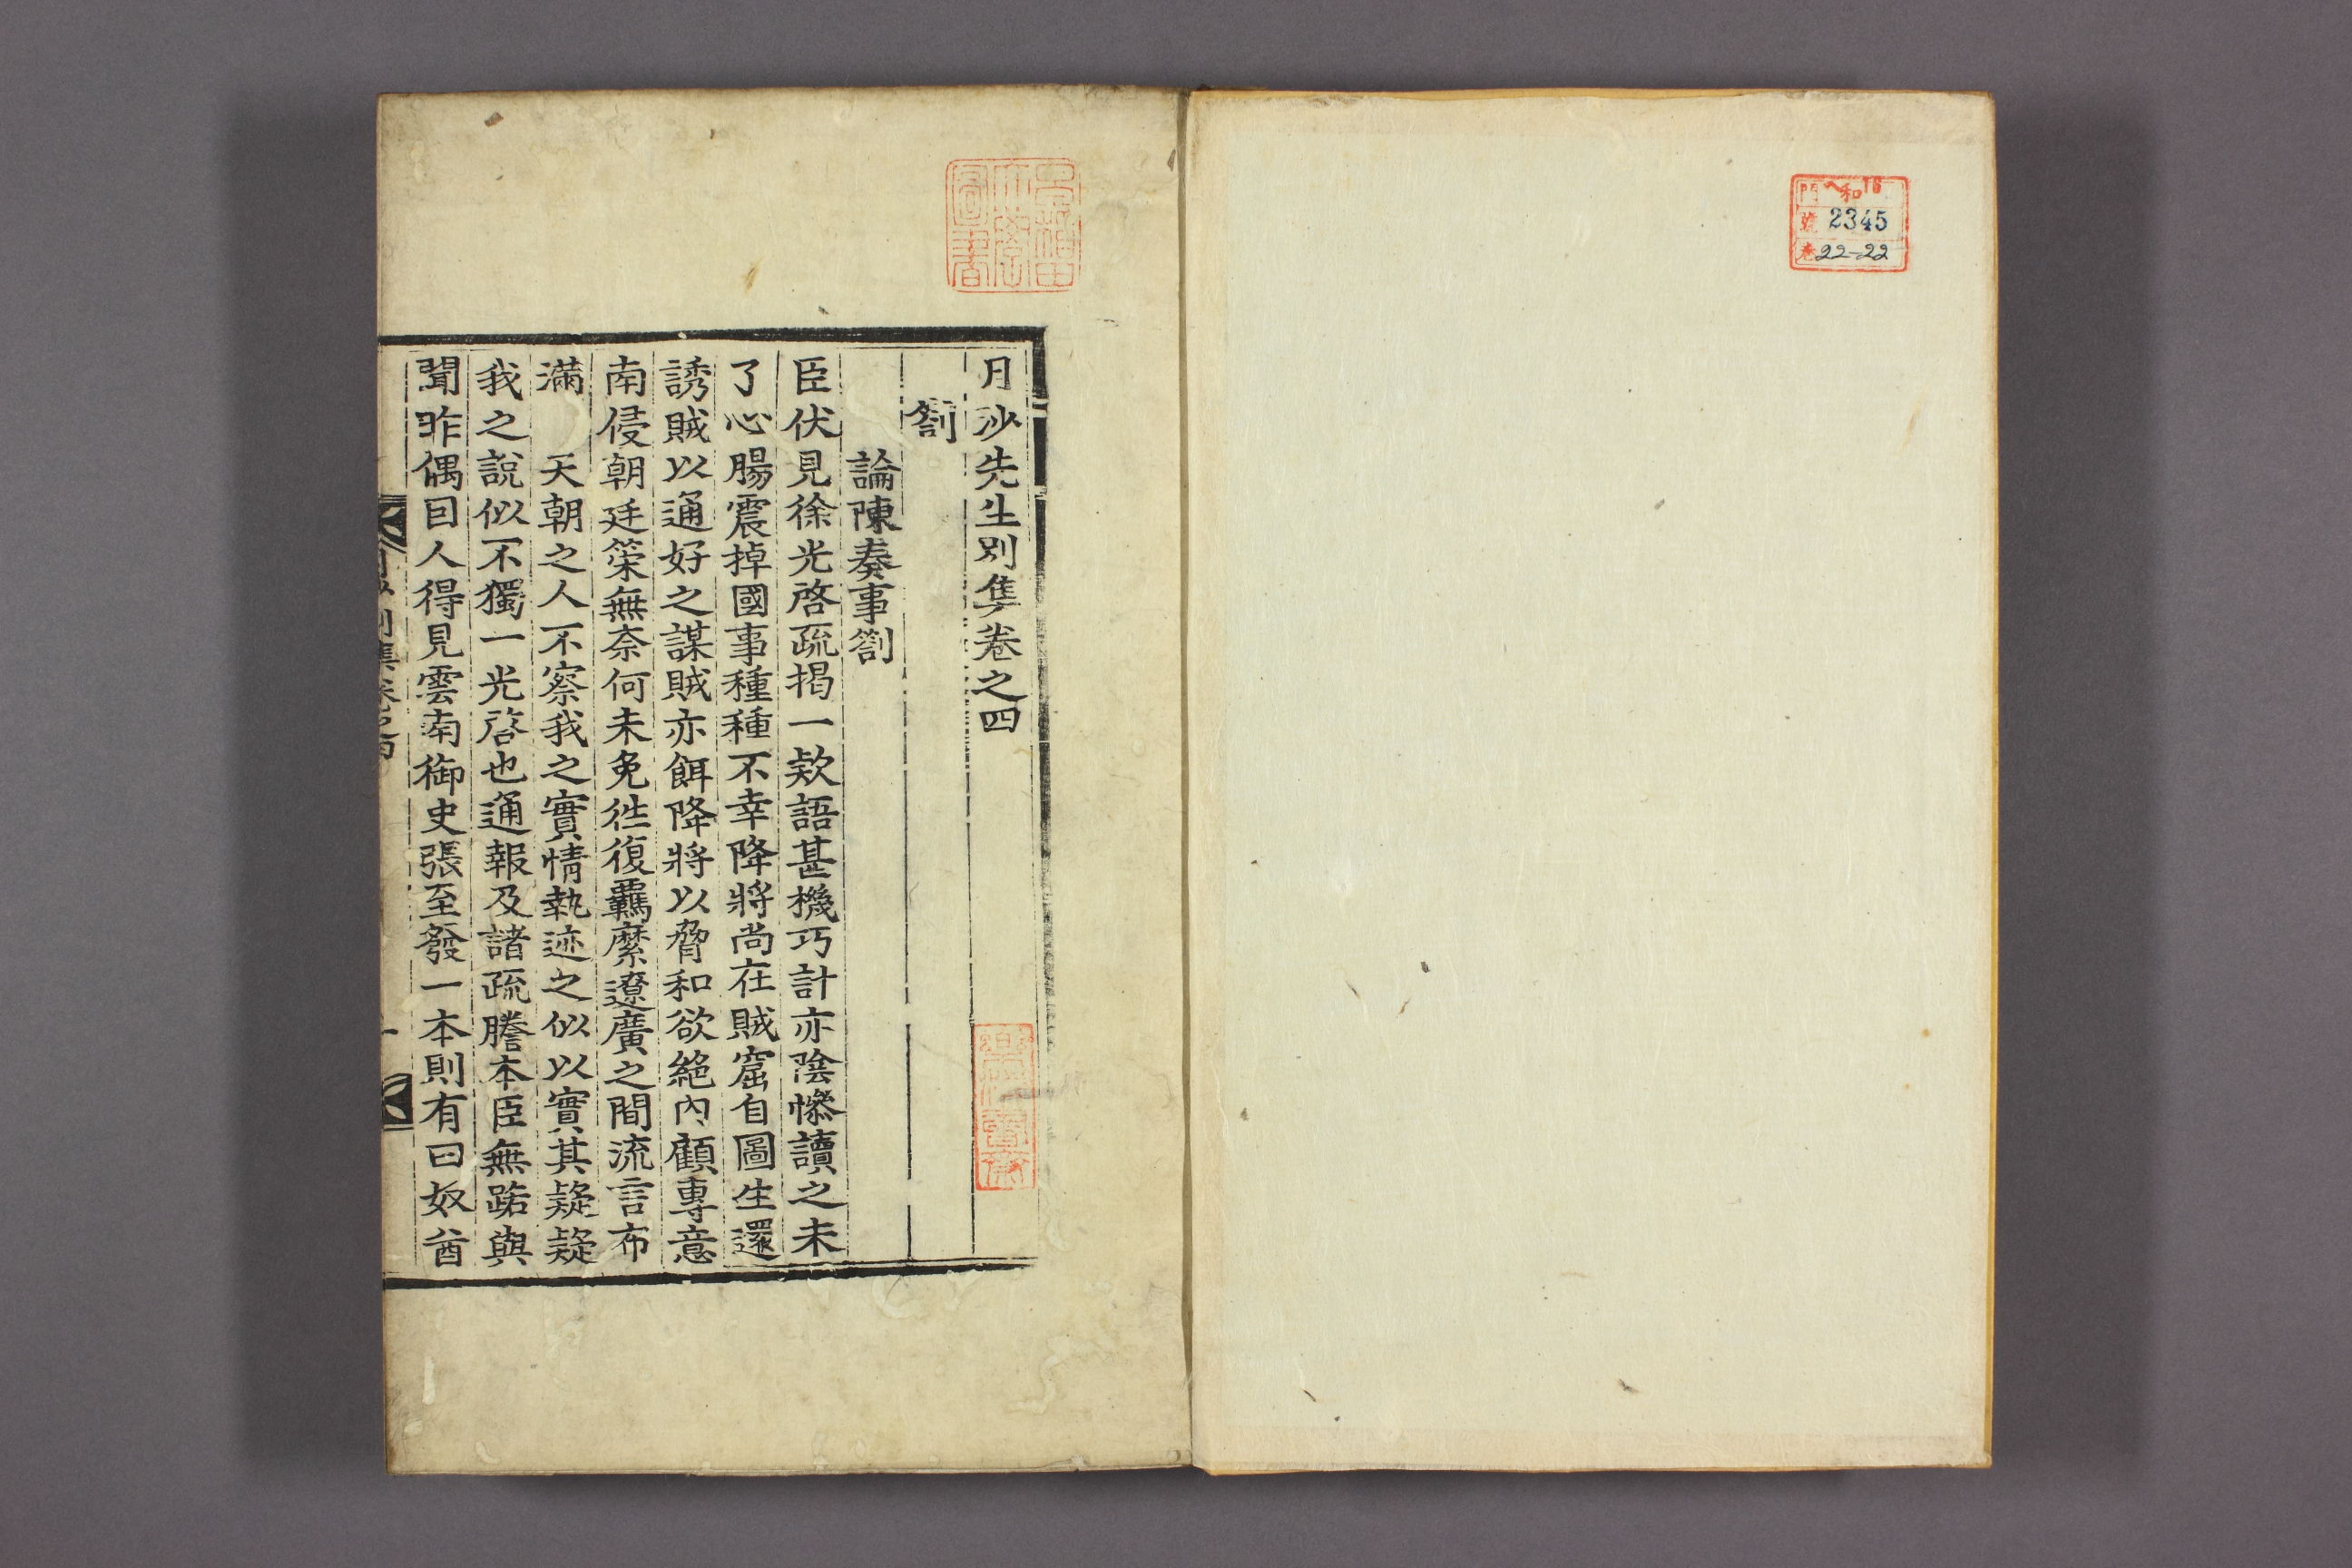 門 和 16
號 2345
卷 22-22
月沙先生別集卷之四
劄
論陳奏事劄
臣伏見徐光啓疏揭一欵語甚機巧計亦陰慘讀之未
了心腸震掉國事種種不幸降將尚在賊窟自圖生還
誘賊以通好之謀賊亦餌降將以脅和欲絶內顧專意
南侵朝廷筞無奈何未免徃復羈縻遼廣之間流言布
滿 天朝之人不察我之實情執迹之似以實其疑疑
我之說似不獨一光啓也通報及諸疏謄本臣無路與
聞昨偶因人得見雲南御史張至發一本則有曰奴酋